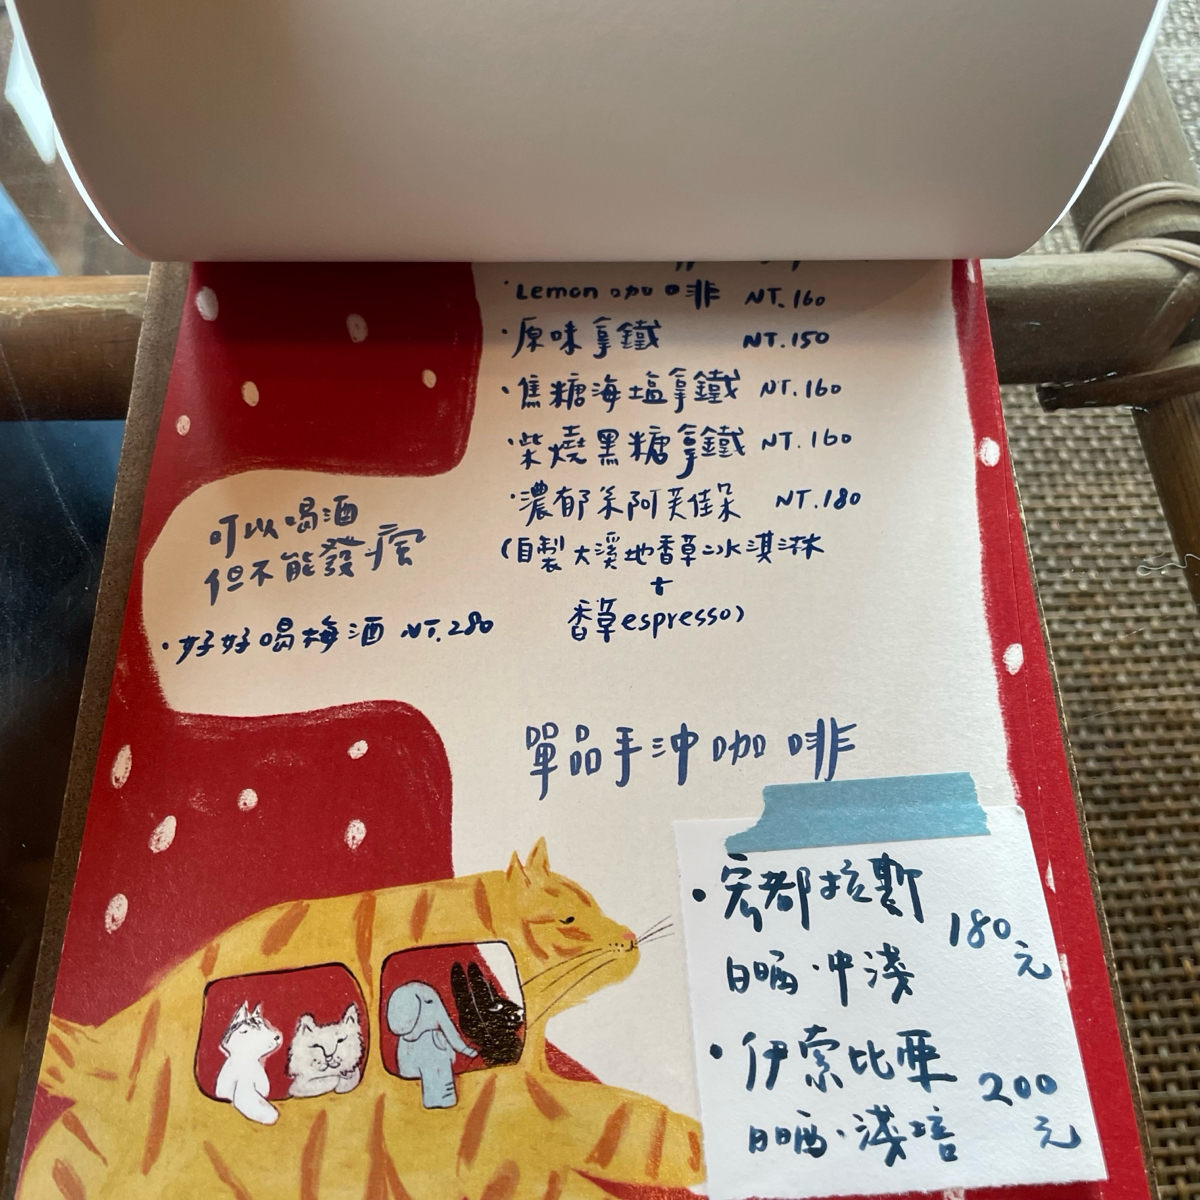 ·Lemon咖啡 NT.160
·原味拿鐵 NT.150
·焦糖海塩拿鐵 NT.160
·柴燒黑糖拿鐵 NT.160
·濃郁系阿芙佳朵 NT.180
(自製大溪地香草冰淇淋
+
香草espresso)
可以喝酒
但不能發瘋
·好好喝梅酒 NT.280
單品手沖咖啡
·宏都拉斯
日晒·中淺
180元
·伊索比亞
日晒·淺培
200元